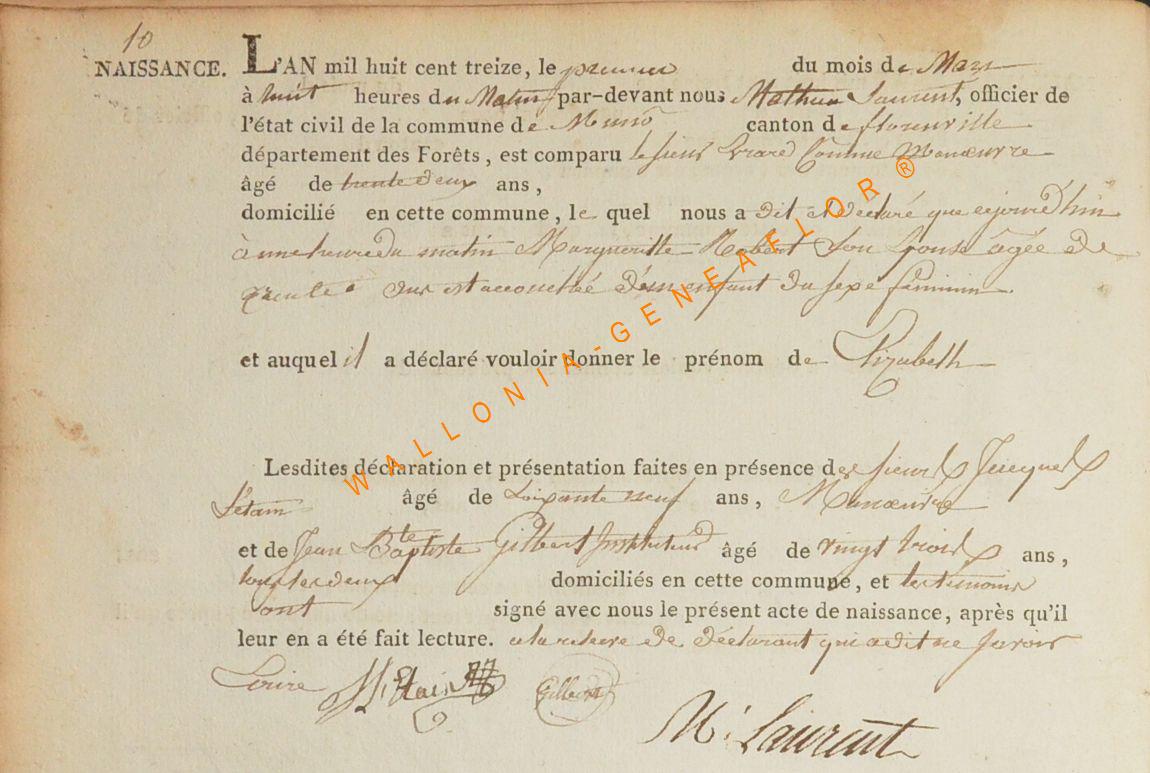 10
NAISSANCE. L'AN mil huit cent treize, le premier du mois de Mars
à huit heures du Matin par-devant nous Mathieu Laurent, officier de
l'état civil de la commune de Muno canton de florenville
département des Forêts, est comparu le sieur Manœuvre
âgé de trente deux ans,
domicilié en cette commune, le quel nous a dit et declaré que cejourd'huy
à une heure du matin Margueritte Robert Son Epouse âgée de
trente ans est accouchée d'un enfant du sexe féminin
et auquel il a déclaré vouloir donner le prénom de Elizabeth
Lesdites déclaration et présentation faites en présence des sieurs Jacques
âgé de Soixante neuf ans, Manœuvre
et de Jean Bapte Gilbert Instituteur âgé de vingt trois ans,
tous les deux domiciliés en cette commune, et les témoins
ont signé avec nous le présent acte de naissance, après qu'il
leur en a été fait lecture. a la reserve de déclarant qui a dit ne savoir
Gilbert
M. Laurent
WALLONIA-GENEAFLOR®